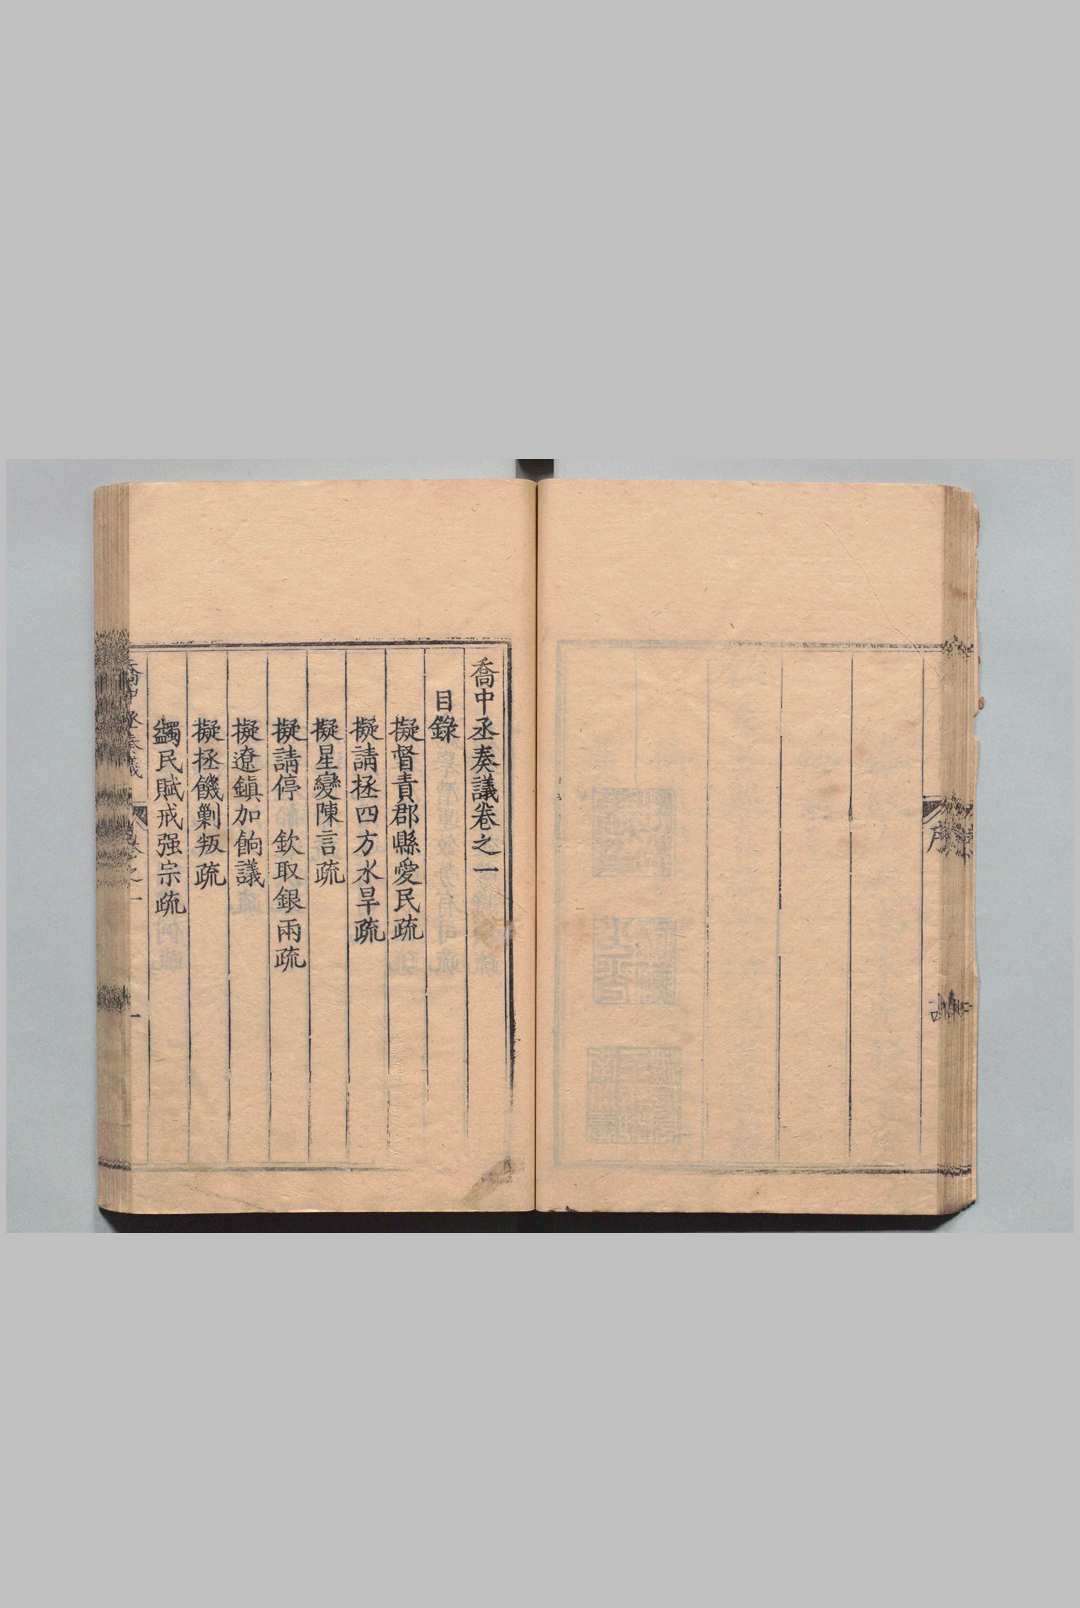 喬中丞奏議卷之一
目錄
擬督責郡縣愛民疏
擬請拯四方水旱疏
擬星變陳言疏
擬請停 欽取銀兩疏
擬遼鎮加餉議
擬拯饑剿叛疏
蠲民賦戒强宗疏
喬中丞奏議
卷之一
一